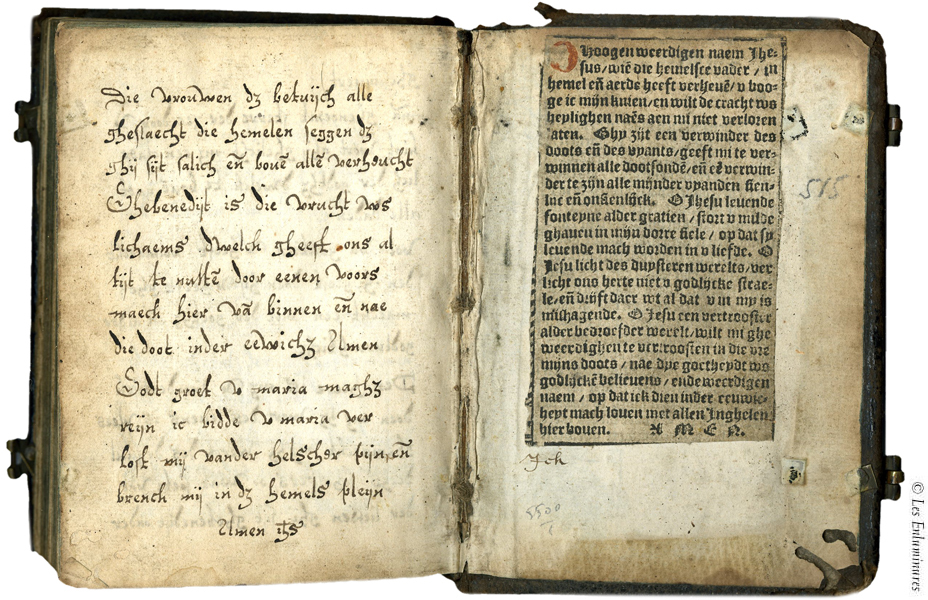 Die vrouwen dz betuijch alle
gheslaecht die hemelen seggen dz
ghij sijt salich eñ bovē allē verheucht
Ghebenedijt is die vrucht ws
lichaems dwelck gheeft ons al
tijt te nuttē door eenen voors
maeck hier vā binnen eñ nae
die doot inder eewichz Amen
Godt groet v maria maghz
reijn ic bidde v maria ver
lost mij vander helscher pijn eñ
brench mij in dz hemels pleijn
Amen ihs
O Hoogen weerdigen naem Jhe-
sus/wiē die hemelsce vader/in
hemel eñ aerde heeft verheuē/v boo-
ge ic mijn knien/en wilt de cracht ws
heylighen naēs aen mi niet verloren
laten. Ghy zijt een verwinder des
doots eñ des vyants/geeft mi te ver-
winnen alle dootsondē/eñ eē verwin-
der te zijn alle mijnder vyanden sien-
lijc eñ onsienlijck. O Jhesu leuende
fonteyne alder gratien/stort v milde
ghauen in mijn dorre siele/op dat sy
leuende mach worden in v liefde. O
Jesu licht des duysteren werelts/ver
licht ons herte met v godlijcke strae-
le/eñ drijft daer wt al dat v in my is
mishagende. O Jesu een vertrooster
alder bedroefder werelt/wilt mi ghe
weerdighen te vertroosten in die vre
mijns doots/nae dye goetheydt ws
godlijckē belieuens/ende weerdigen
naem/op dat ick dien inder eeuwic-
heyt mach louen met allen Inghelen
hier bouen. A M E N.
Jck
515
5500
© Les Enluminures